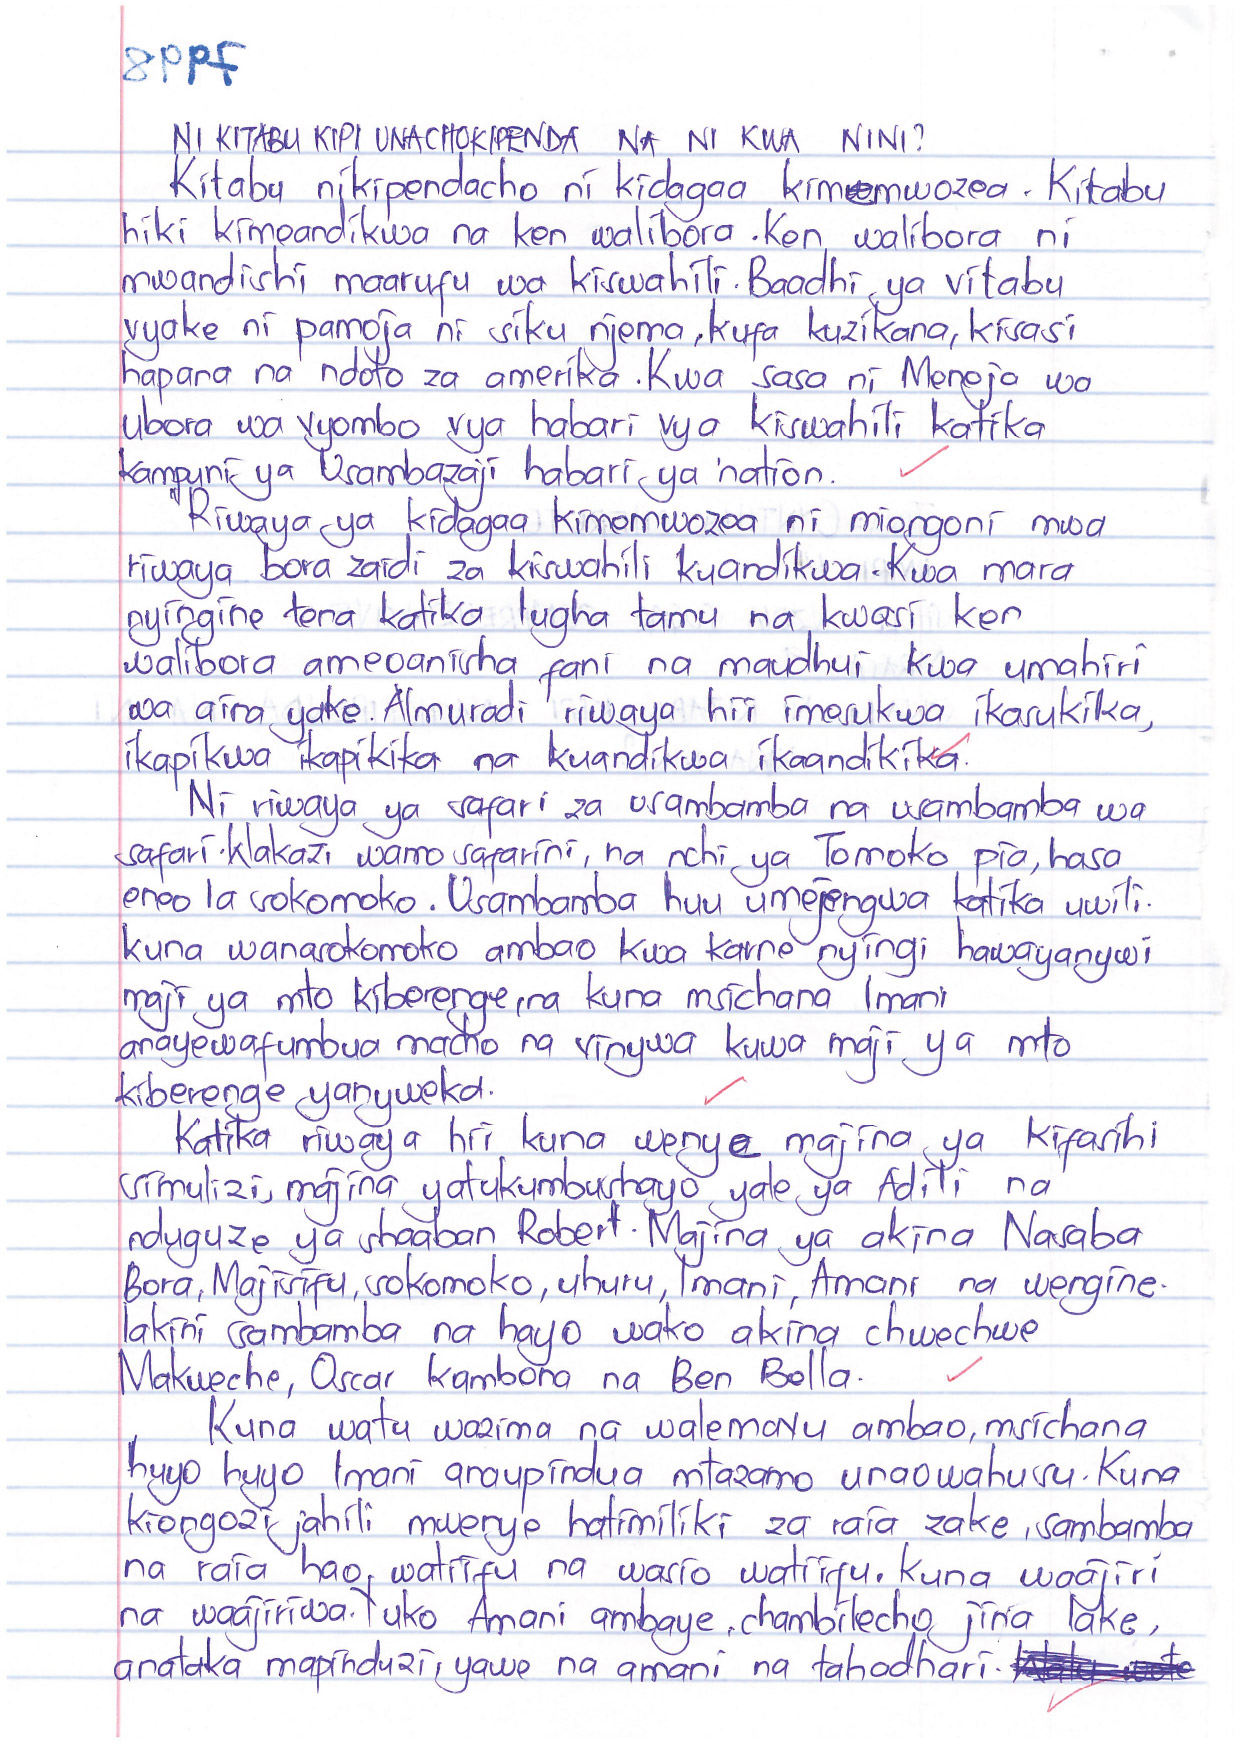 8PPF
NI KITABU KIPI UNACHOKIPENDA NA NI KWA NINI?
Kitabu nikipendacho ni kidagaa kimemwozea. Kitabu
hiki kimeandikwa na ken walibora. Ken walibora ni
mwandishi maarufu wa kiswahili. Baadhi ya vitabu
vyake ni pamoja ni siku njema, kufa kuzikana, kisasi
hapana na ndoto za amerika. Kwa sasa ni Meneja wa
ubora wa vyombo vya habari vya kiswahili katika
kampuni ya Usambazaji habari ya 'nation.
"Riwaya ya kidagaa kimemwozea ni miongoni mwa
riwaya bora zaidi za kiswahili kuandikwa. Kwa mara
nyingine tena katika lugha tamu na kwasi ken
walibora ameoanisha fani na maudhui kwa umahiri
wa aina yake. Almuradi riwaya hii imesukwa ikasukika,
ikapikwa ikapikika na kuandikwa ikaandikika.
Ni riwaya ya safari za usambamba na usambamba wa
safari. Wakazi wamo safarini, na nchi ya Tomoko pia, hasa
eneo la sokomoko. Usambamba huu umejengwa katika uwili.
kuna wanasokomoko ambao kwa karne nyingi hawayanywi
maji ya mto kiberenge, na kuna msichana Imani
anayewafumbua macho na vinywa kuwa maji ya mto
kiberenge yanyweka.
Katika riwaya hii kuna wenye majina ya kifasihi
simulizi, majina yatukumbushayo yale ya Aditi na
nduguze ya shaaban Robert. Majina ya akina Nasaba
Bora, Majisifu, sokomoko, uhuru, Imani, Amani na wengine.
lakini sambamba na hayo wako akina chwechwe
Makweche, Oscar kambona na Ben Bella.
Kuna watu wazima na walemavu ambao, msichana
huyo huyo Imani anaupindua mtazamo unaowahusu. Kuna
kiongozi jahili mwenye hatimiliki za raia zake, sambamba
na raia hao, watiifu na wasio watiifu. Kuna waajiri
na waajiriwa. Yuko Amani ambaye, chambilecho jina lake,
anataka mapinduzi, yawe na amani na tahadhari.